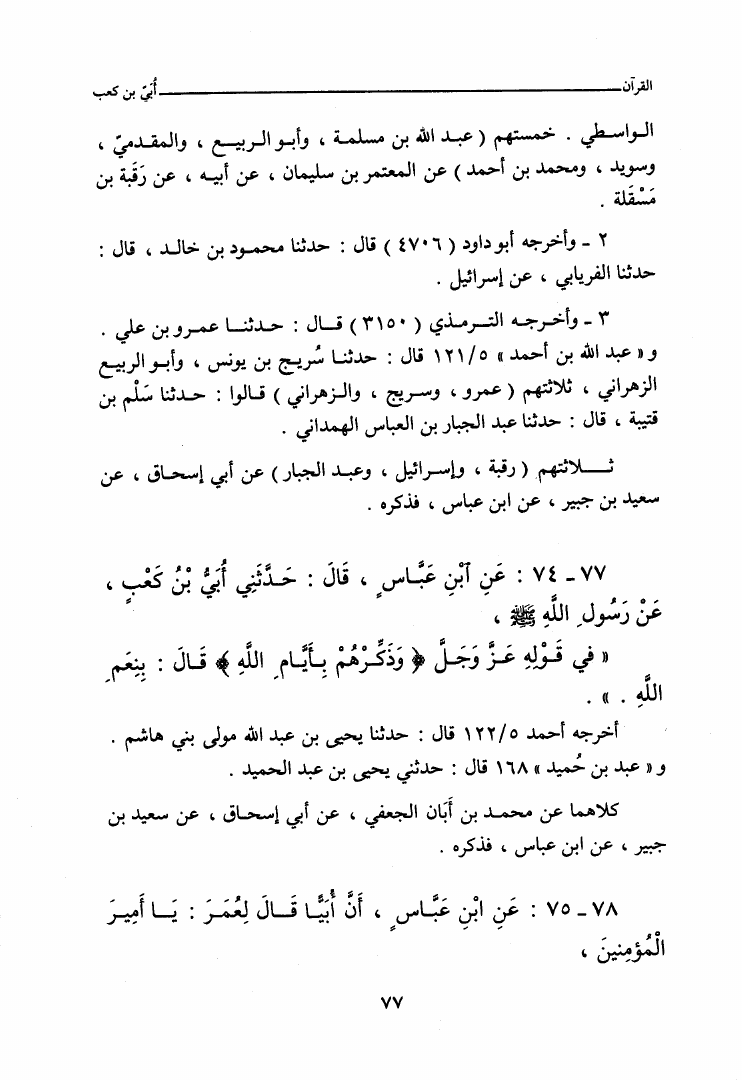 القرآن ــــــ أُبَيّ بن كعب
الواسطي . خمستهم ( عبد الله بن مسلمة ، وأبو الربيع ، والمقدميّ ،
وسويد ، ومحمد بن أحمد ) عن المعتمر بن سليمان ، عن أبيه ، عن رَقَبة بن
مَسْقَلة .
٢ ـ وأخرجه أبو داود ( ٤٧٠٦ ) قال : حدثنا محمود بن خالد ، قال :
حدثنا الفريابي ، عن إسرائيل .
٣ ـ وأخرجه الترمذي ( ٣١٥٠ ) قال : حدثنا عمرو بن علي .
و « عبد الله بن أحمد » ١٢١/٥ قال : حدثنا سُريج بن يونس ، وأبو الربيع
الزهراني ، ثلاثتهم ( عمرو ، وسريج ، والزهراني ) قالوا : حدثنا سَلْم بن
قتيبة ، قال : حدثنا عبد الجبار بن العباس الهمداني .
ثلاثتهم ( رقبة ، وإسرائيل ، وعبد الجبار ) عن أبي إسحاق ، عن
سعيد بن جبير ، عن ابن عباس ، فذكره .
٧٧ ـ ٧٤ : عَنِ ٱبْنِ عَبَّاسٍ ، قَالَ : حَدَّثَنِي أُبَيُّ بْنُ كَعْبٍ ،
عَنْ رَسُولِ اللَّهِ ﷺ ،
« في قَوْلِهِ عَزَّ وَجَلَّ ﴿ وَذَكِّرْهُمْ بِأَيَّامِ اللَّهِ ﴾ قَالَ : بِنِعَمِ
اللَّهِ . » .
أخرجه أحمد ١٢٢/٥ قال : حدثنا يحيى بن عبد الله مولى بني هاشم .
و « عبد بن حُميد » ١٦٨ قال : حدثني يحيى بن عبد الحميد .
كلاهما عن محمد بن أَبَان الجعفي ، عن أبي إسحاق ، عن سعيد بن
جبير ، عن ابن عباس ، فذكره .
٧٨ ـ ٧٥ : عَنِ ابْنِ عَبَّاسٍ ، أَنَّ أُبَيًّا قَالَ لِعُمَرَ : يَا أَمِيرَ
الْمُؤمِنينَ ،
٧٧